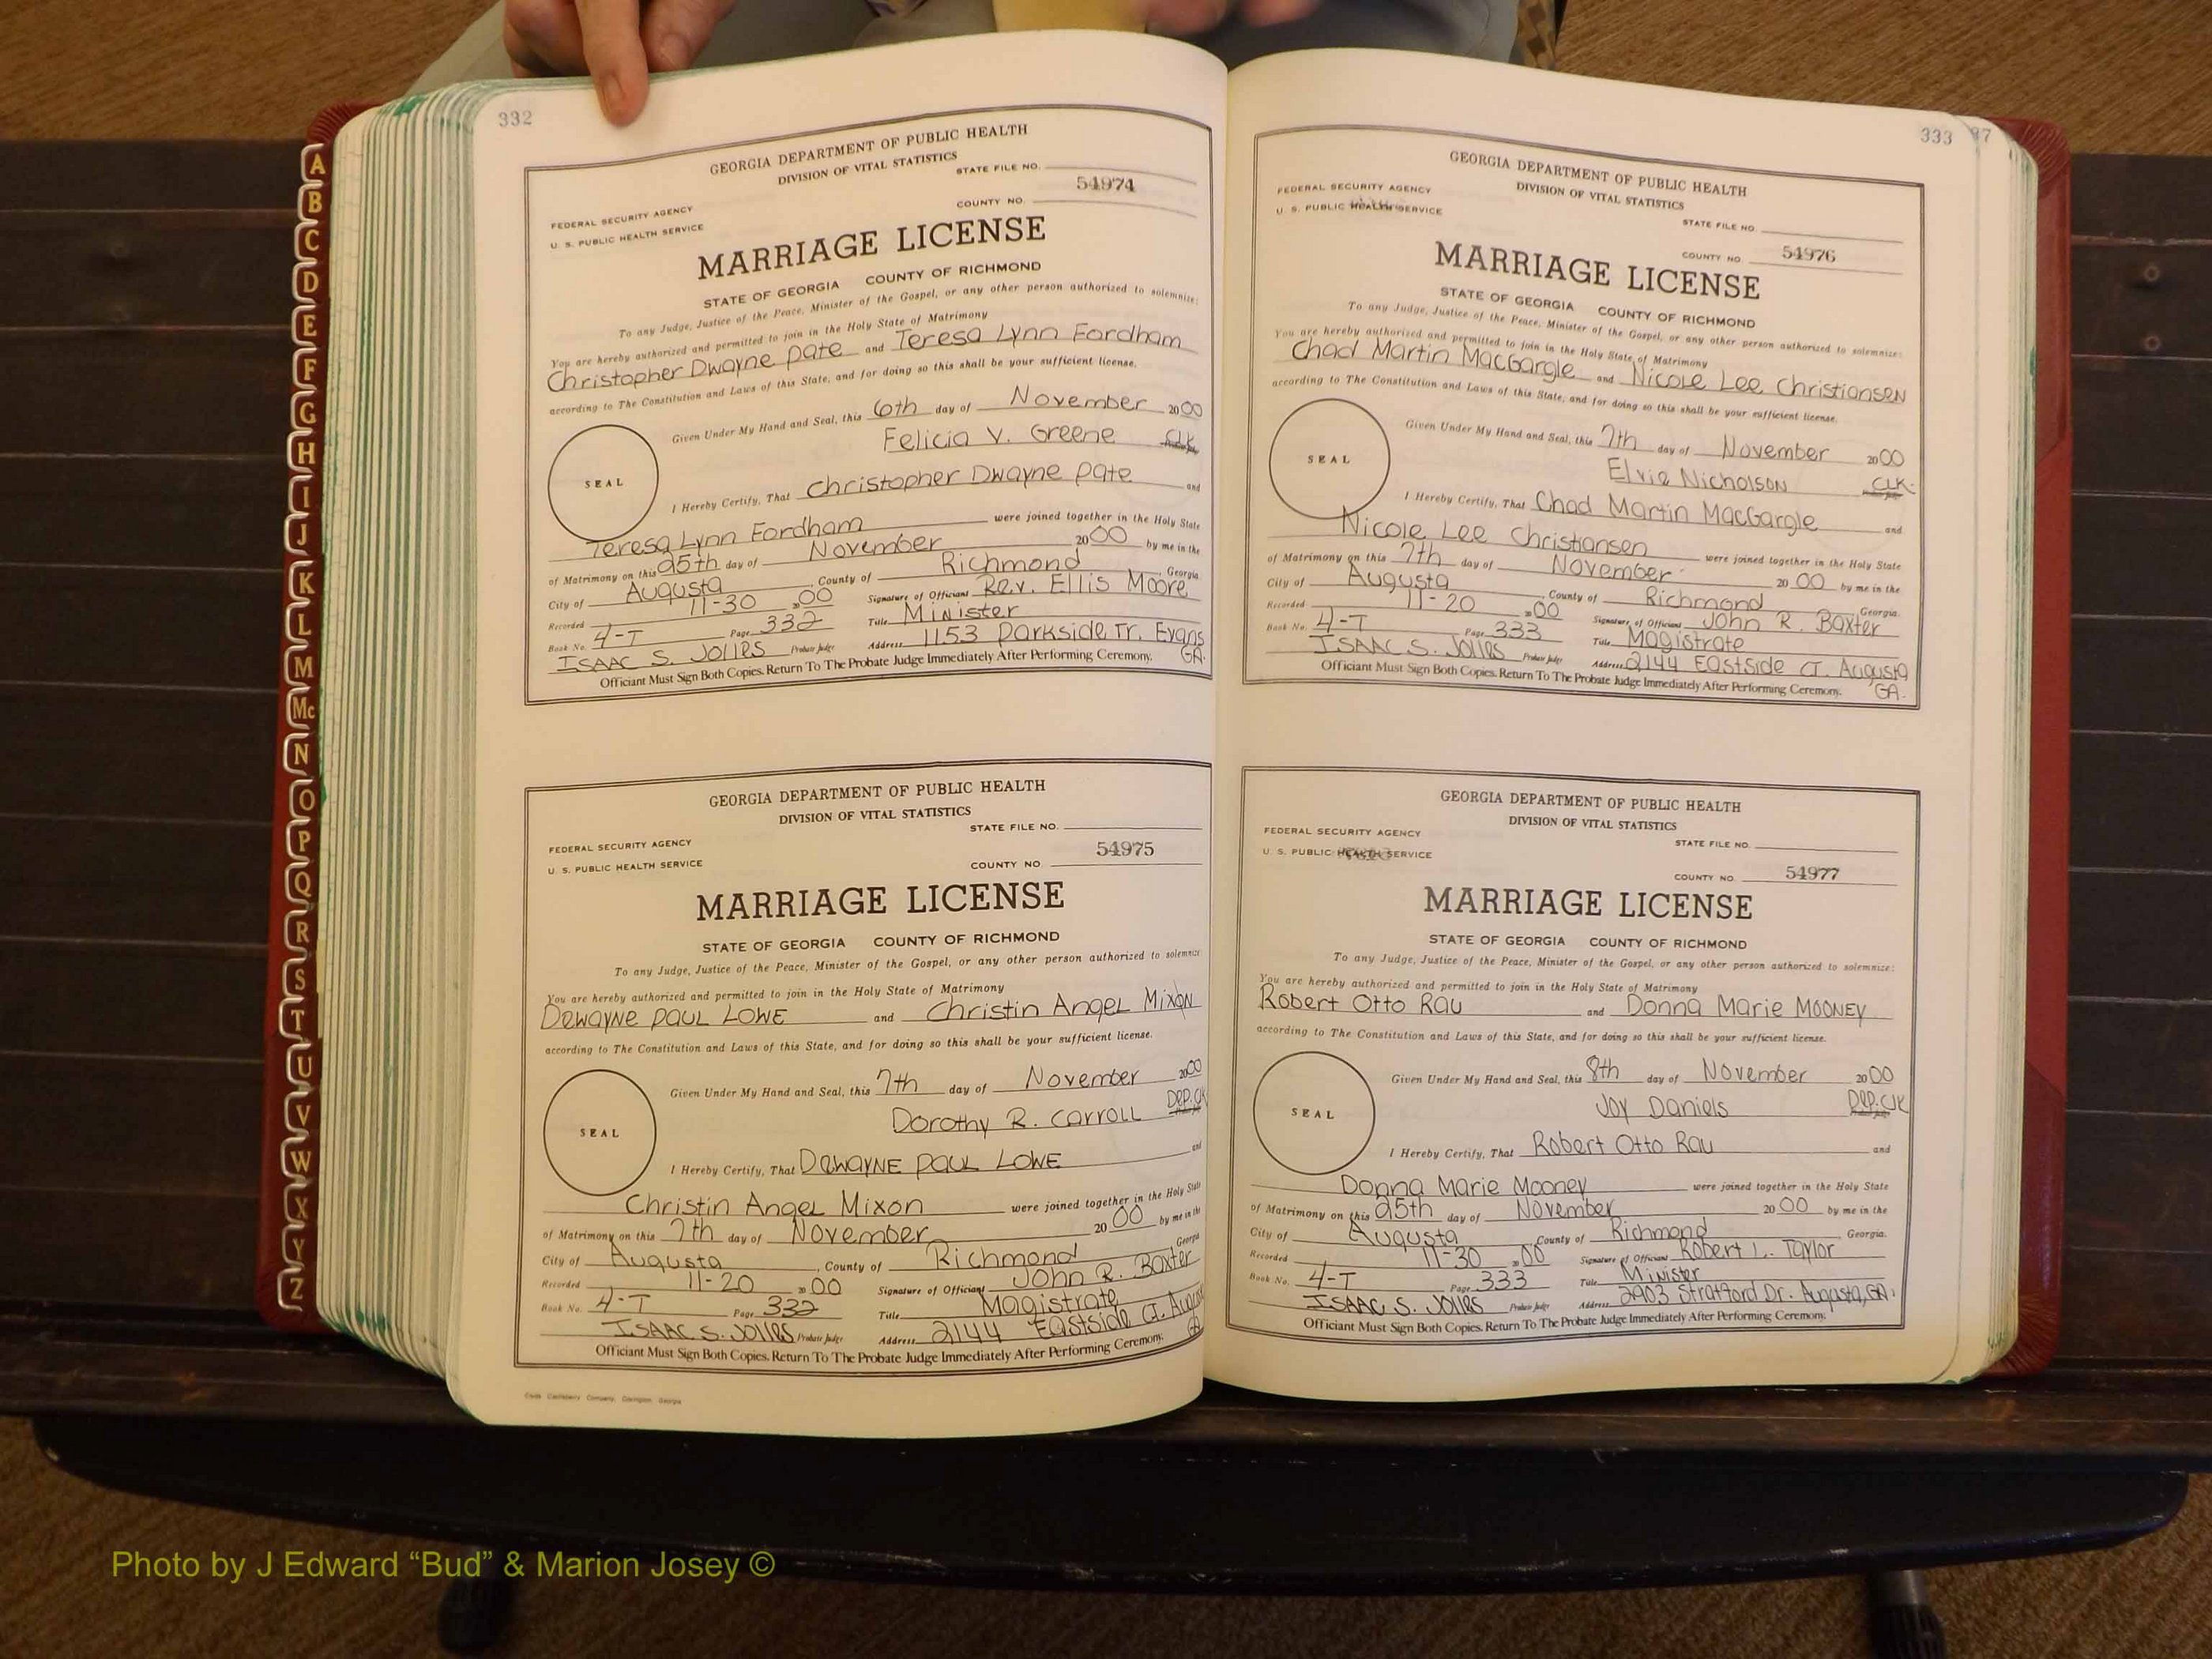 332
GEORGIA DEPARTMENT OF PUBLIC HEALTH
DIVISION OF VITAL STATISTICS
STATE FILE NO.
54974
COUNTY NO.
FEDERAL SECURITY AGENCY
U. S. PUBLIC HEALTH SERVICE
MARRIAGE LICENSE
STATE OF GEORGIA COUNTY OF RICHMOND
To any Judge, Justice of the Peace, Minister of the Gospel, or any other person authorized to solemnize:
You are hereby authorized and permitted to join in the Holy State of Matrimony
Christopher Dwayne Pate and Teresa Lynn Fordham
according to The Constitution and Laws of this State, and for doing so this shall be your sufficient license.
Given Under My Hand and Seal, this 6th day of November 2000
Felicia V. Greene CLK
SEAL
I Hereby Certify, That Christopher Dwayne Pate and
Teresa Lynn Fordham were joined together in the Holy State
of Matrimony on this 25th day of November 2000 by me in the
City of Augusta, County of Richmond, Georgia.
Recorded 11-30 2000 Signature of Officiant Rev. Ellis Moore
Book No. 4-T Page 332 Title Minister
ISAAC S. JOLLES Probate Judge Address 1153 Parkside Tr. Evans GA.
Officiant Must Sign Both Copies. Return To The Probate Judge Immediately After Performing Ceremony.
GEORGIA DEPARTMENT OF PUBLIC HEALTH
DIVISION OF VITAL STATISTICS
STATE FILE NO.
FEDERAL SECURITY AGENCY
U. S. PUBLIC HEALTH SERVICE
COUNTY NO. 54975
MARRIAGE LICENSE
STATE OF GEORGIA COUNTY OF RICHMOND
To any Judge, Justice of the Peace, Minister of the Gospel, or any other person authorized to solemnize:
You are hereby authorized and permitted to join in the Holy State of Matrimony
Dewayne Paul Lowe and Christin Angel Mixon
according to The Constitution and Laws of this State, and for doing so this shall be your sufficient license.
Given Under My Hand and Seal, this 7th day of November 2000
Dorothy R. Carroll Dep. Clk
SEAL
I Hereby Certify, That Dewayne Paul Lowe and
Christin Angel Mixon were joined together in the Holy State
of Matrimony on this 7th day of November 2000 by me in the
City of Augusta, County of Richmond Georgia
Recorded 11-20 2000 Signature of Officiant John R. Baxter
Book No. 4-T Page 332 Title Magistrate
ISAAC S. JOLLES Probate Judge Address 2144 Eastside Ct. August GA
Officiant Must Sign Both Copies. Return To The Probate Judge Immediately After Performing Ceremony.
333 87
GEORGIA DEPARTMENT OF PUBLIC HEALTH
DIVISION OF VITAL STATISTICS
FEDERAL SECURITY AGENCY
U. S. PUBLIC HEALTH SERVICE
STATE FILE NO.
COUNTY NO 54976
MARRIAGE LICENSE
STATE OF GEORGIA COUNTY OF RICHMOND
To any Judge, Justice of the Peace, Minister of the Gospel, or any other person authorized to solemnize:
You are hereby authorized and permitted to join in the Holy State of Matrimony
Chad Martin MacGargle and Nicole Lee Christiansen
according to The Constitution and Laws of this State, and for doing so this shall be your sufficient license.
Given Under My Hand and Seal, this 7th day of November 2000
Elvie Nicholson CLK.
SEAL
I Hereby Certify, That Chad Martin MacGargle and
Nicole Lee Christiansen were joined together in the Holy State
of Matrimony on this 7th day of November 2000 by me in the
City of Augusta, County of Richmond Georgia.
Recorded 11-20 2000 Signature of Officiant John R. Baxter
Book No. 4-T Page 333 Title Magistrate
ISAAC S. JOLLES Probate Judge Address 2144 Eastside Ct. Augusta GA.
Officiant Must Sign Both Copies. Return To The Probate Judge Immediately After Performing Ceremony.
GEORGIA DEPARTMENT OF PUBLIC HEALTH
DIVISION OF VITAL STATISTICS
FEDERAL SECURITY AGENCY
U. S. PUBLIC HEALTH SERVICE
STATE FILE NO.
COUNTY NO 54977
MARRIAGE LICENSE
STATE OF GEORGIA COUNTY OF RICHMOND
To any Judge, Justice of the Peace, Minister of the Gospel, or any other person authorized to solemnize:
You are hereby authorized and permitted to join in the Holy State of Matrimony
Robert Otto Rau and Donna Marie Mooney
according to The Constitution and Laws of this State, and for doing so this shall be your sufficient license.
Given Under My Hand and Seal, this 8th day of November 2000
Joy Daniels Dep. Clk
SEAL
I Hereby Certify, That Robert Otto Rau and
Donna Marie Mooney were joined together in the Holy State
of Matrimony on this 25th day of November 2000 by me in the
City of Augusta, County of Richmond Georgia.
Recorded 11-30 2000 Signature of Officiant Robert L. Taylor
Book No. 4-T Page 333 Title Minister
ISAAC S. JOLLES Probate Judge Address 2903 Stratford Dr. Augusta, GA.
Officiant Must Sign Both Copies. Return To The Probate Judge Immediately After Performing Ceremony.
A
B
C
D
E
F
G
H
I
J
K
L
M
Mc
N
O
P
Q
R
S
T
U
V
W
X
Y
Z
Photo by J Edward “Bud” & Marion Josey ©